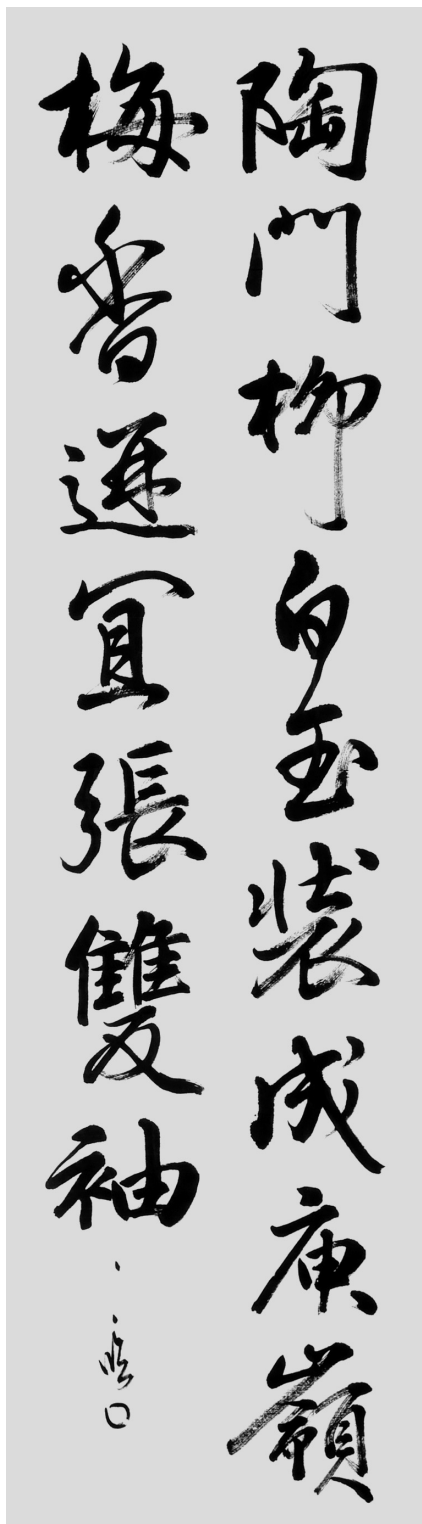 陶門柳白玉裝成庾嶺
梅香遲宜張雙袖